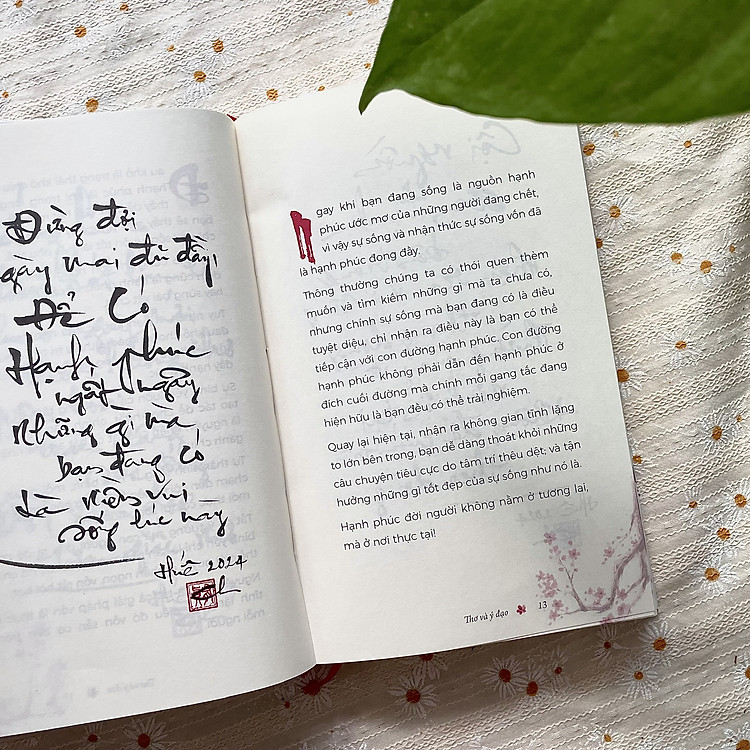 Đừng đợi
ngày mai đủ đầy,
Để Có
Hạnh phúc
ngất ngây
Những gì mà
bạn đang có
Là niềm vui
sống lúc này
Huế 2024
Ngay khi bạn đang sống là nguồn hạnh
phúc ước mơ của những người đang chết,
vì vậy sự sống và nhận thức sự sống vốn đã
là hạnh phúc đong đầy.
Thông thường chúng ta có thói quen thèm
muốn và tìm kiếm những gì mà ta chưa có,
nhưng chính sự sống mà bạn đang có là điều
tuyệt diệu, chỉ nhận ra điều này là bạn có thể
tiếp cận với con đường hạnh phúc. Con đường
hạnh phúc không phải dẫn đến hạnh phúc ở
đích cuối đường mà chính mỗi gang tấc đang
hiện hữu là bạn đều có thể trải nghiệm.
Quay lại hiện tại, nhận ra không gian tĩnh lặng
to lớn bên trong, bạn dễ dàng thoát khỏi những
câu chuyện tiêu cực do tâm trí thêu dệt; và tận
hưởng những gì tốt đẹp của sự sống như nó là.
Hạnh phúc đời người không nằm ở tương lai,
mà ở nơi thực tại!
Thơ và ý đạo 13